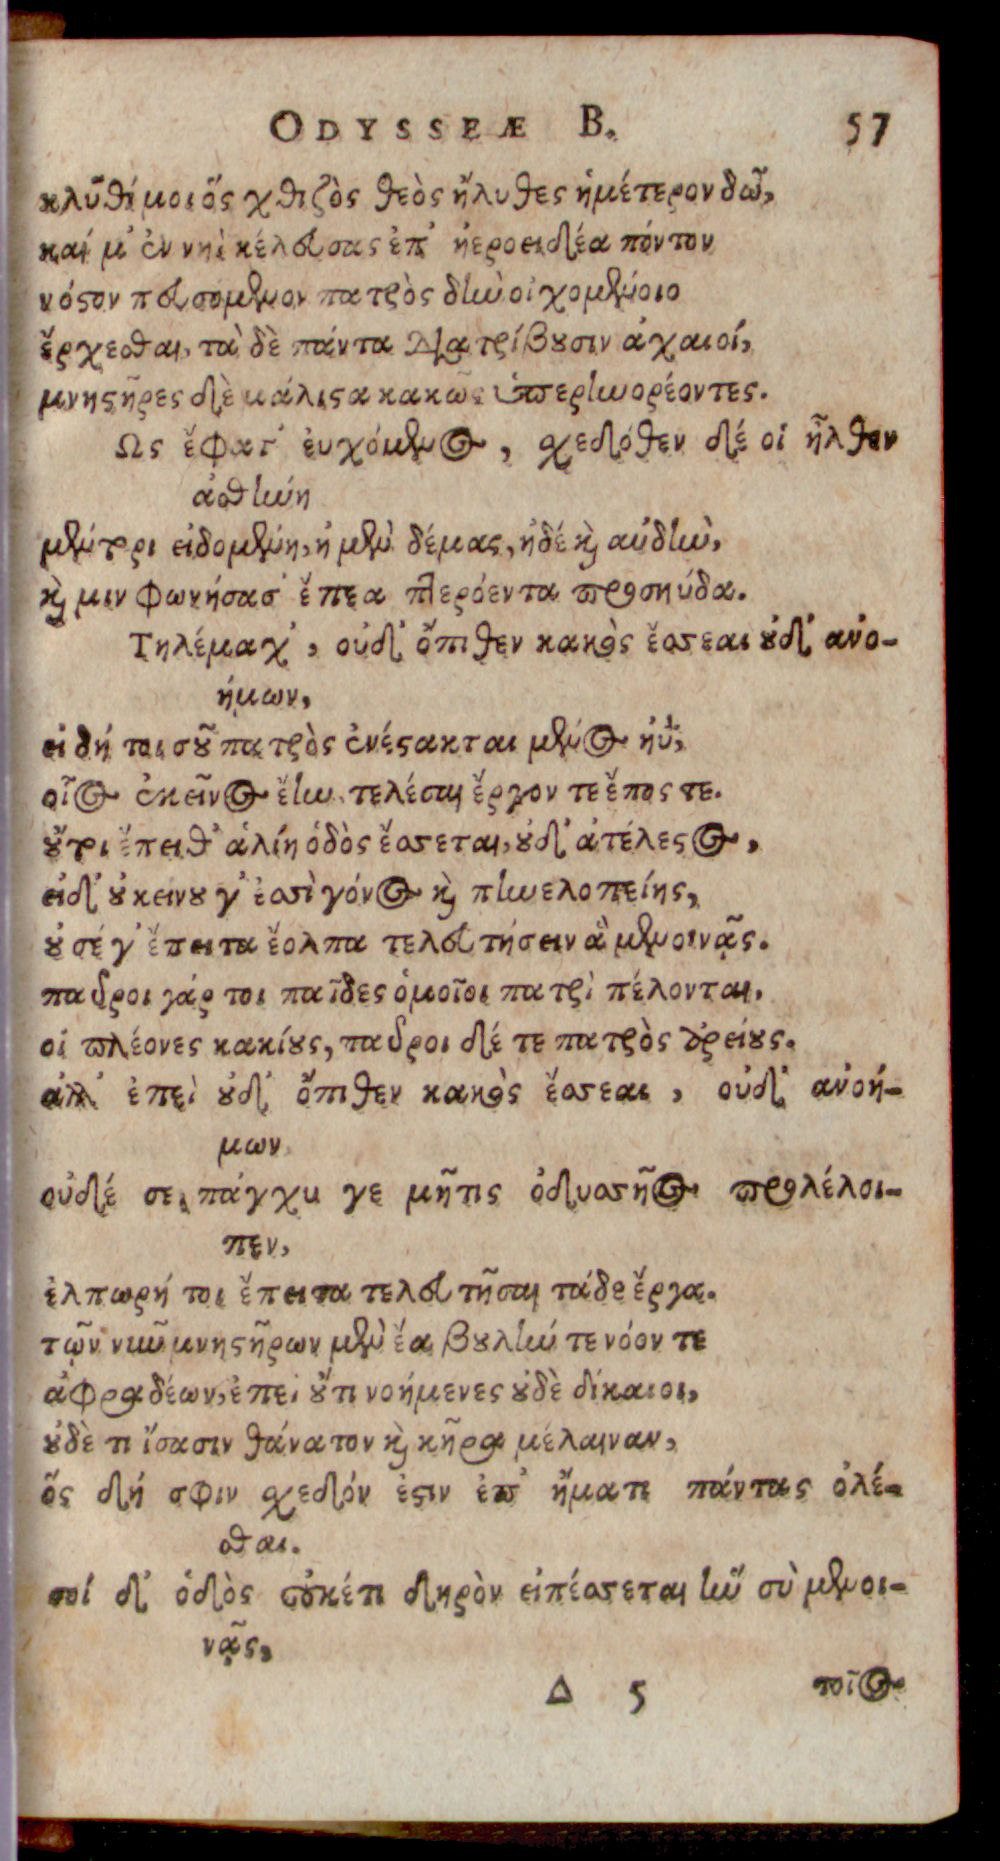 ODYSSEÆ B. 57
κλῦθί μοι ὅς χθιζὸς θεὸς ἤλυθες ἡμέτερον δῶ,
καί μ' ἐν νηῒ κέλευσας ἐπ' ἠεροειδέα πόντον
νόστον πευσόμενον πατρὸς δὴν οἰχομένοιο
ἔρχεσθαι, τὰ δὲ πάντα διατρίβουσιν ἀχαιοί,
μνηστῆρες δὲ μάλιστα κακῶς ὑπερηνορέοντες.
Ως ἔφατ' ἐυχόμενος, σχεδόθεν δέ οἱ ἦλθεν
ἀθήνη
μέντορι εἰδομένη, ἠμὲν δέμας, ἠδὲ καὶ αὐδὴν,
καὶ μιν φωνήσασ' ἔπεα πτερόεντα προσηύδα.
Τηλέμαχ', οὐδ' ὄπιθεν κακὸς ἔσσεαι οὐδ' ἀνο-
ήμων,
εἰ δή τοι σοῦ πατρὸς ἐνέστακται μένος ἠΰ,
οἷος ἐκεῖνος ἔην τελέσαι ἔργον τε ἔπος τε.
οὔτοι ἔπειθ' ἁλίη ὁδὸς ἔσσεται, οὐδ' ἀτέλεστος,
εἰ δ' οὐ κείνου γ' ἐσσὶ γόνος καὶ πηνελοπείης,
οὐ σέ γ' ἔπειτα ἔολπα τελευτήσειν ἃ μενοινᾷς.
παῦροι γάρ τοι παῖδες ὁμοῖοι πατρὶ πέλονται,
οἱ πλέονες κακίους, παῦροι δέ τε πατρὸς ἀρείους.
ἀλλ' ἐπεὶ οὐδ' ὄπιθεν κακὸς ἔσσεαι, οὐδ' ἀνοή-
μων
οὐδέ σε πάγχυ γε μῆτις ὀδυσσῆος προλέλοι-
πεν,
ἐλπωρή τοι ἔπειτα τελευτῆσαι τάδε ἔργα.
τῶν νῦν μνηστήρων μὲν ἔα βουλήν τε νόον τε
ἀφραδέων, ἐπεὶ οὔτι νοήμενες οὐδὲ δίκαιοι,
οὐδέ τι ἴσασιν θάνατον καὶ κῆρα μέλαιναν,
ὅς δή σφιν σχεδόν ἐστιν ἐπ' ἤματι πάντας ὀλέ-
σθαι.
σοί δ' ὁδὸς οὐκέτι δηρὸν ἀπέσσεται ἣν σὺ μενοι-
νᾷς,
Δ 5 τοῖος